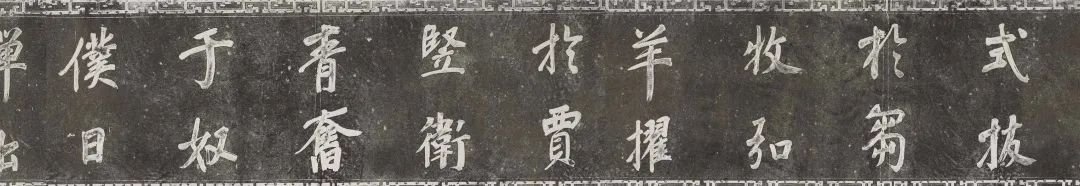 式拔
於芻
牧弘
羊擢
於賈
竪衛
青奮
于奴
僕日